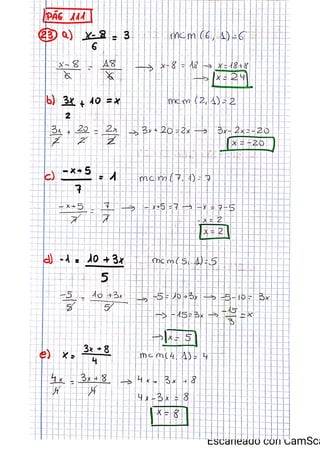 PÁG 111
23 a) x-8/6 = 3 mcm(6,1)=6
x-8/6 = 18/6 → x-8 = 18 → x=18+8
→ x=24
b) 3x/2 + 10 = x mcm(2,1)=2
3x/2 + 20/2 = 2x/2 → 3x+20=2x → 3x-2x=-20
x=-20
c) -x+5/7 = 1 mcm(7,1)=7
-x+5/7 = 7/7 → -x+5=7 → -x=7-5
-x=2
x=2
d) -1 = 10+3x/5 mcm(5,1)=5
-5/5 = 10+3x/5 → -5=10+3x → -5-10=3x
→ -15=3x → -15/3=x
→ x=5
e) x = 3x+8/4 mcm(4,1)=4
4x/4 = 3x+8/4 → 4x=3x+8
4x-3x=8
x=8
Escaneado con CamSca